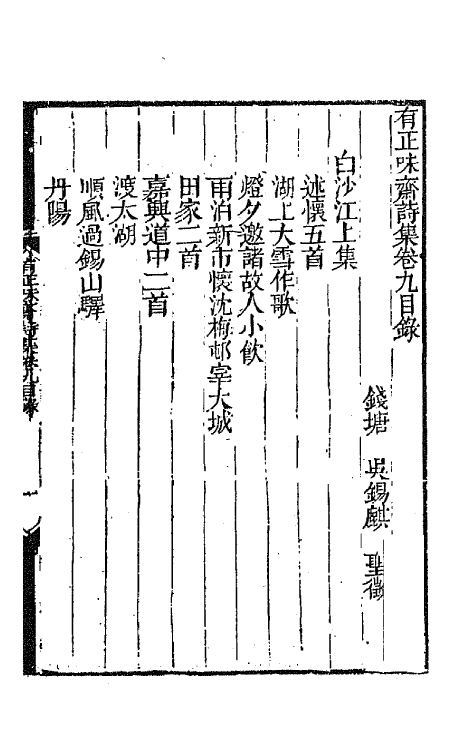 有正味齋詩集卷九目錄
錢塘 吳錫麒 聖徵
白沙江上集
述懷五首
湖上大雪作歌
燈夕邀諸故人小飲
雨泊新市懷沈梅邨宰大城
田家二首
嘉興道中二首
渡太湖
順風過錫山驛
丹陽
有正味齋詩集卷九目錄
一